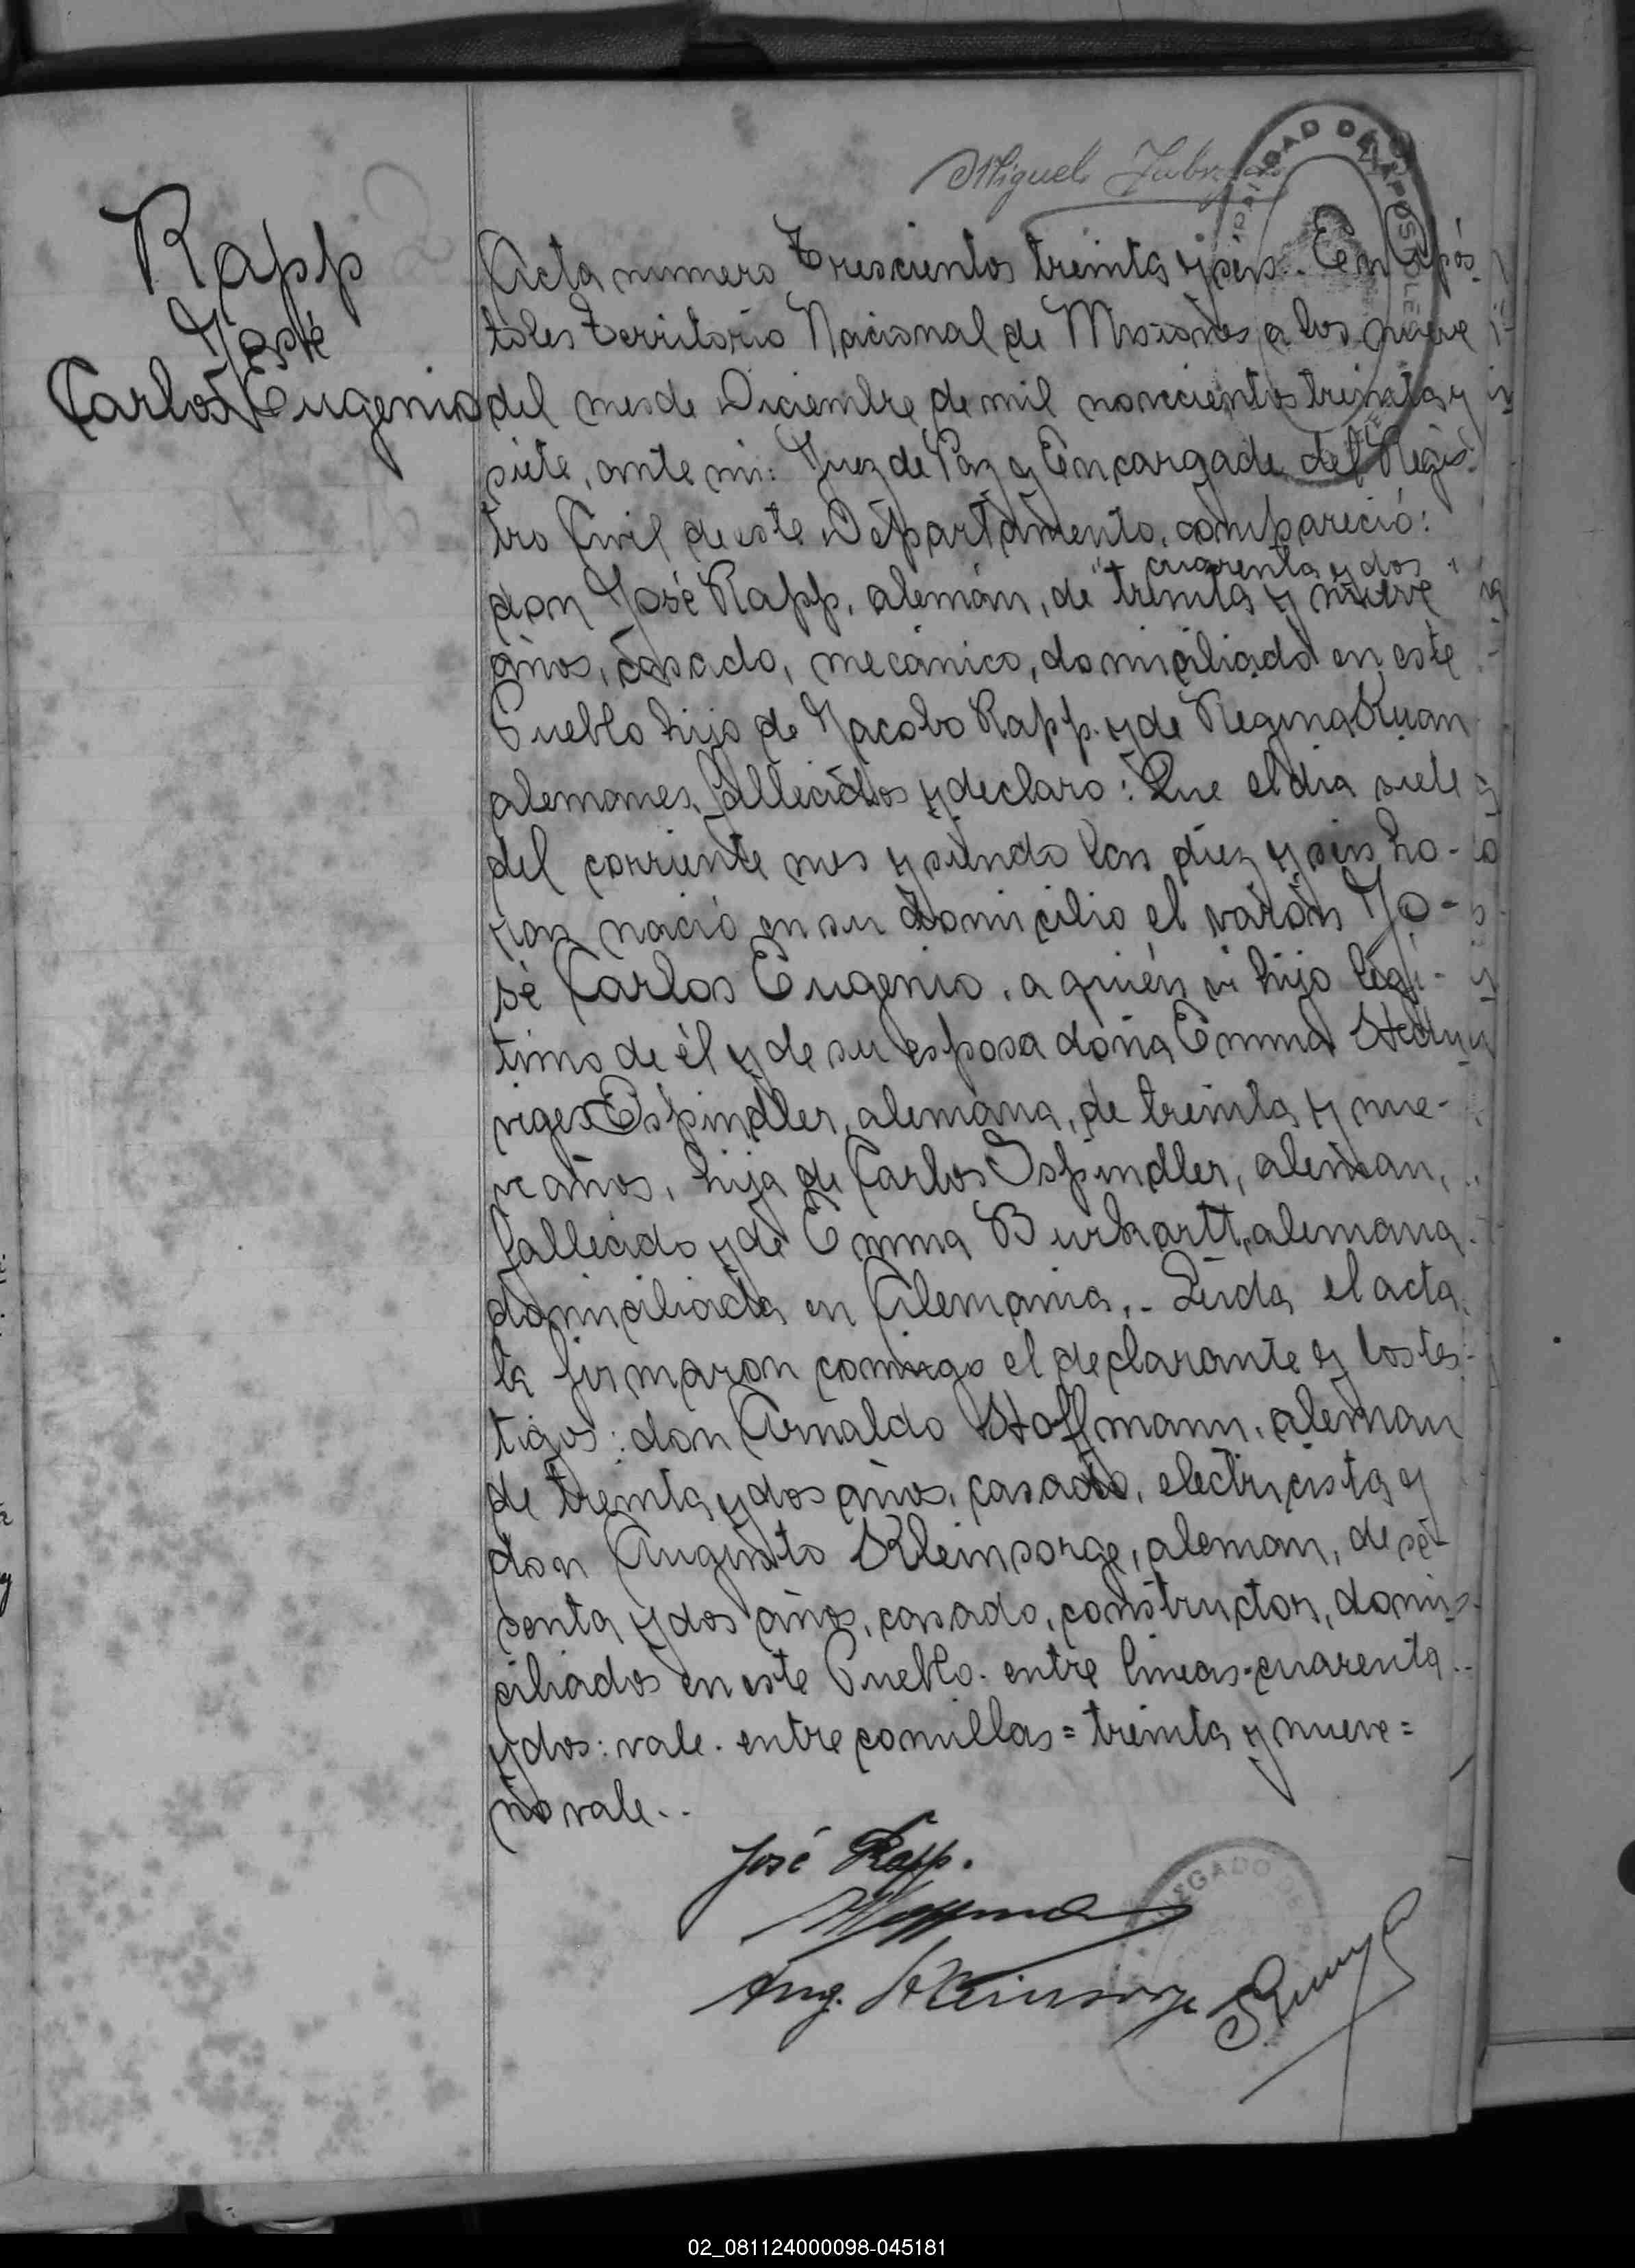 Miguel
Rapp
José
Carlos Eugenio
Acta numero trescientos treinta y seis. En Após-
toles Territorio Nacional de Misiones a los nueve
del mes de Diciembre de mil novecientos treinta y
siete, ante mi: Juez de Paz y Encargado del Regis-
tro Civil de este Departamento, compareció:
cuarenta y dos
don José Rapp, alemán, de "treinta y nueve"
años, casado, mecánico, domiciliado en este
Pueblo hijo de Jacobo Rapp y de Regina Kuan
alemanes, fallecidos y declaro: Que el dia siete
del corriente mes y siendo las diez y seis ho-
ras nació en su domicilio el varón Jo-
sé Carlos Eugenio, a quién vi hijo legi-
timo de él y de su esposa doña Emma Hedu
viges Espindler, alemana, de treinta y nue-
ve años, hija de Carlos Ispindler, aleman,
fallecido y de Emma Burkartt, alemana
domiciliada en Alemania.- Leida el acta
la firmaron conmigo el declarante y los tes-
tigos: don Arnaldo Hoffmann, aleman
de treinta y dos años, casado, electricista y
don Augusto Kleinsorge, aleman, de se-
senta y dos años, casado, constructor, domi-
ciliados en este Pueblo. entre lineas-cuarenta
y dos: vale. entre comillas = treinta y nueve =
no vale..
José Rapp.
Aug. Kleinsorge
02_081124000098-045181